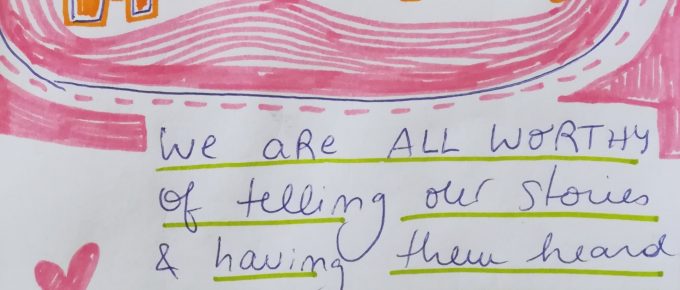 We aRe ALL WORTHY
of telling our stories
& having them heard